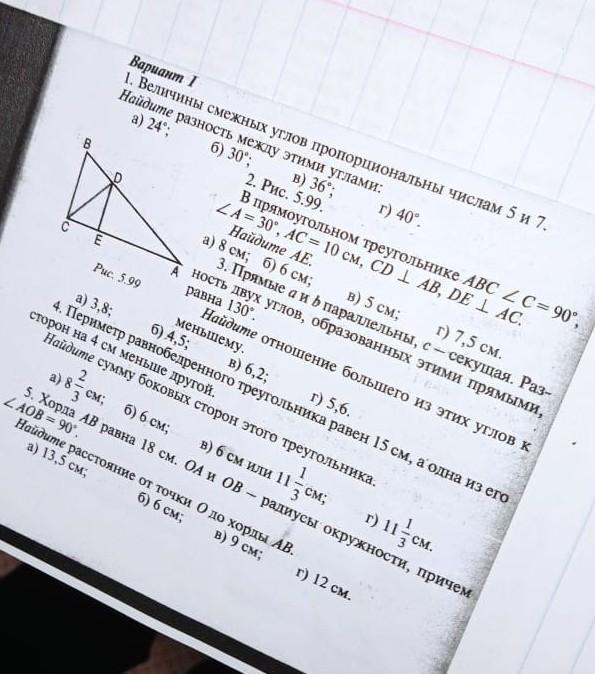 Вариант I
1. Величины смежных углов пропорциональны числам 5 и 7.
Найдите разность между этими углами:
а) 24°; б) 30°; в) 36°; г) 40°.
2. Рис. 5.99.
В прямоугольном треугольнике ABC ∠ C = 90°,
∠ A = 30°, AC = 10 см, CD ⊥ AB, DE ⊥ AC.
Найдите AE.
а) 8 см; б) 6 см; в) 5 см; г) 7,5 см.
B
D
C
E
A
Рис. 5.99
3. Прямые a и b параллельны, c – секущая. Раз-
ность двух углов, образованных этими прямыми,
равна 130°.
Найдите отношение большего из этих углов к
меньшему.
а) 3,8; б) 4,5; в) 6,2; г) 5,6.
4. Периметр равнобедренного треугольника равен 15 см, а одна из его
сторон на 4 см меньше другой.
Найдите сумму боковых сторон этого треугольника.
а) 8 2/3 см; б) 6 см; в) 6 см или 11 1/3 см; г) 11 1/3 см.
5. Хорда AB равна 18 см. OA и OB – радиусы окружности, причем
∠ AOB = 90°.
Найдите расстояние от точки O до хорды AB.
а) 13,5 см; б) 6 см; в) 9 см; г) 12 см.